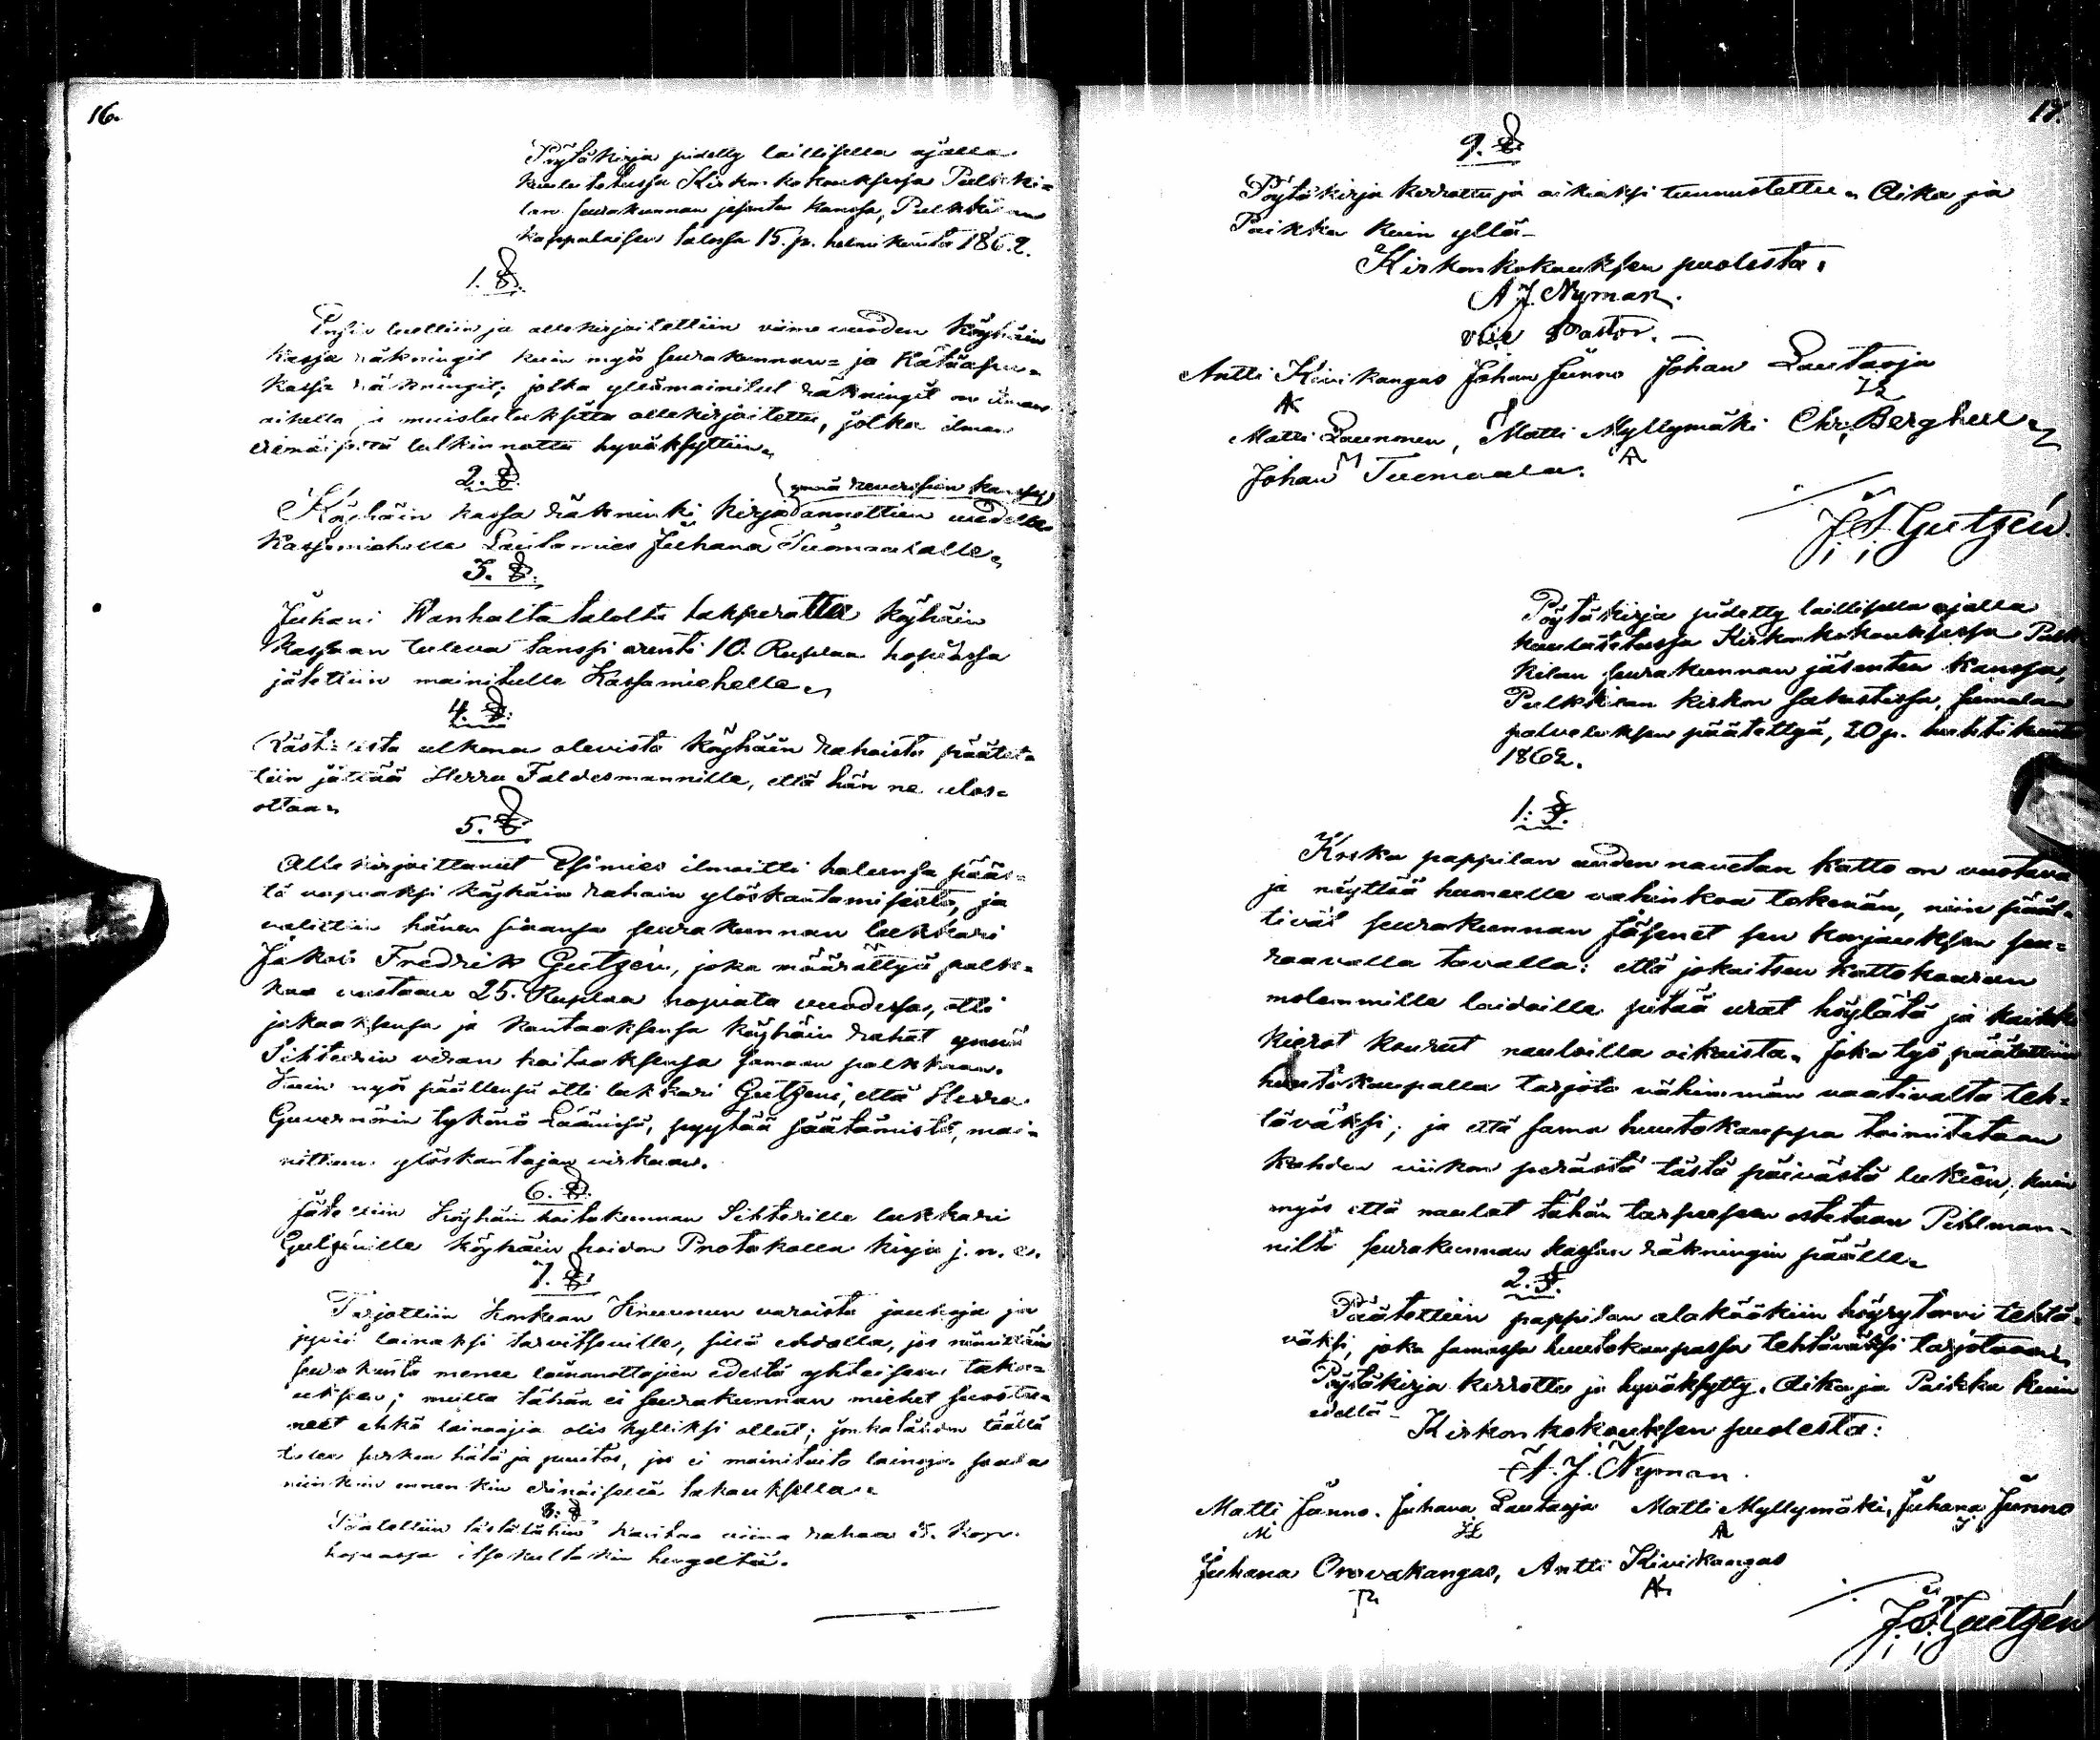 16.
Pöytäkirja pidetty laillisella ajalla
kuulutetussa Kirkonkokouksessa Pulkki=
lan seurakunnan jäsenten kanssa, Pulkkilan
kappalaisen talossa 15 p. helmikuuta 1862.
1. §.
Ensin luettiin ja allekirjoitettiin viime vuoden köyhäin
kassa räkningit kuin myös seurakunnan= ja
kassa räkningit; jotka yllämainitut räkningit on
aikella ja muistutuksitta allekirjoitettu, jotka ilman
erinäisettä tutkinnotta hyväksyttiin.
2. §.
(ynnä reverssein kanssa)
Köyhäin kassa räkninki kirja annettiin uudelle
Kassamiehelle Lautamies Juhana Tuomaalalle.
3. §.
Juhani Wanhalta talolta takperatta köyhäin
kassaan tuleva tanssi arenti 10. Ruplaa hopiassa
jätettiin mainitulle Kassamiehelle.
4. §.
Rästilista ulkona olevista köyhäin rahoista päätet=
tiin jättää Herra Faldesmannille, että hän ne ulos=
ottaa.
5. §
Allekirjoittanut Esimies ilmoitti halunsa pääs=
tä vapaaksi köyhäin rahain ylöskantamisesta, ja
valittiin hänen siaansa seurakunnan lukkari
Jakob Fredrik Gutzén, joka määrättyä palk=
kaa vastaan 25. Ruplaa hopiata vuodessa, otti
jakaaksensa ja kantaaksensa köyhäin rahat ynnä
Sihteerin viran hoitaaksensa samaan palkkaan.
Kuin myös päällensä otti lukkari Gutzeni, että Herra
Guvernörin tykönä Läänissä, pyytää säätämistä, mai=
nittuun ylöskantajan virkaan.
6. §.
Jätettiin Köyhäin hoitokunnan Sihterille lukkari
Gutzenille köyhäin hoidon Protokolla kirja j. n. e.
7. §.
Tarjottiin Konkean Kruunun varoista jauhoja ja
jyviä lainaksi tarvitseville, sillä ehdolla, jos nimittäin
seurakunta menee lainanottajien edestä yhteiseen taka=
ukseen; mutta tähän ei seurakunnan miehet suostu=
neet ehkä lainaajia olis kylliksi ollut; täällä
tulee hätä ja puutos, jos ei mainituita lainoja saada
niinkuin ennenkin erinäisellä takauksella.
8. §
Päätettiin tästälähin kantaa viina rahaa 5. kop.
hopiassa itsekultakin hengeltä.
17.
9. §
Pöytäkirja kerrottu ja oikiaksi tunnustettu. Aika ja
Paikka kuin yllä.
Kirkonkokouksen puolesta:
A J. Nyman.
vice Pastor.
Antti Kivikangas Johan Junno Johan Lautaoja
AK
Matti Laununen, Matti Myllymäki Chr. Berghell
M A
Johan Tuomaala.
J. F. Gutzén.
Pöytäkirja pidetty laillisella ajalla
kuulutetussa Kirkonkokouksessa Pulk
kilan seurakunnan jäsenten kanssa,
Pulkkilan kirkon sakastissa, Jumalan
palveluksen päätettyä, 20 p. huhtikuuta
1862.
1. §.
Koska pappilan uuden navetan katto on vuotava
ja näyttää huoneelle vahinkoa tekevän, niin päät=
tivät seurakunnan jäsenet sen korjauksen seu=
raavalla tavalla: että jokaitsen kattokaaren
molemmille laidoille pitää urat höylätä ja kaikki
kierot kourut nauloilla oikaista. Joka työ päätettiin
huutokaupalla tarjota vähimmän vaativalta teh=
täväksi; ja että sama huutokauppa toimitetaan
kahden viikon perästä tästä päivästä lukien, kuin
myös että naulat tähän tarpeesen ostetaan Pihlman=
nilta seurakunnan kassan räkningin päälle.
2. §.
Päätettiin pappilan alakäökiin höyrytorvi tehtä=
väksi, joka samassa huutokaupassa tehtäväksi tarjotaan.
Pöytäkirja kerrottu ja hyväksytty. Aika ja Paikka kuin
edellä.
Kirkonkokouksen puolesta:
A. J. Nyman.
Matti Junno. Juhana Lautaoja Matti Myllymäki, Juhana Junno
M JL A J
Juhana Oravakangas, Antti Kivikangas
AK
J. F. Gutzén